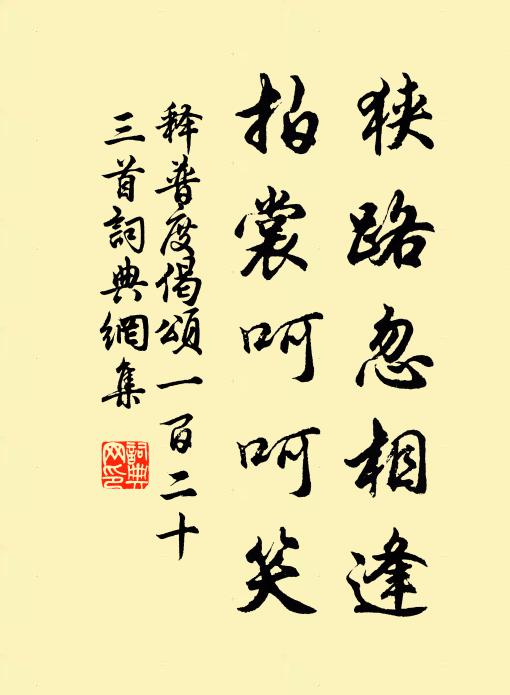 狹路忽相逢
拍裳呵呵笑
释普度偈頌一百二十
三首詞典網集
詞典
网印